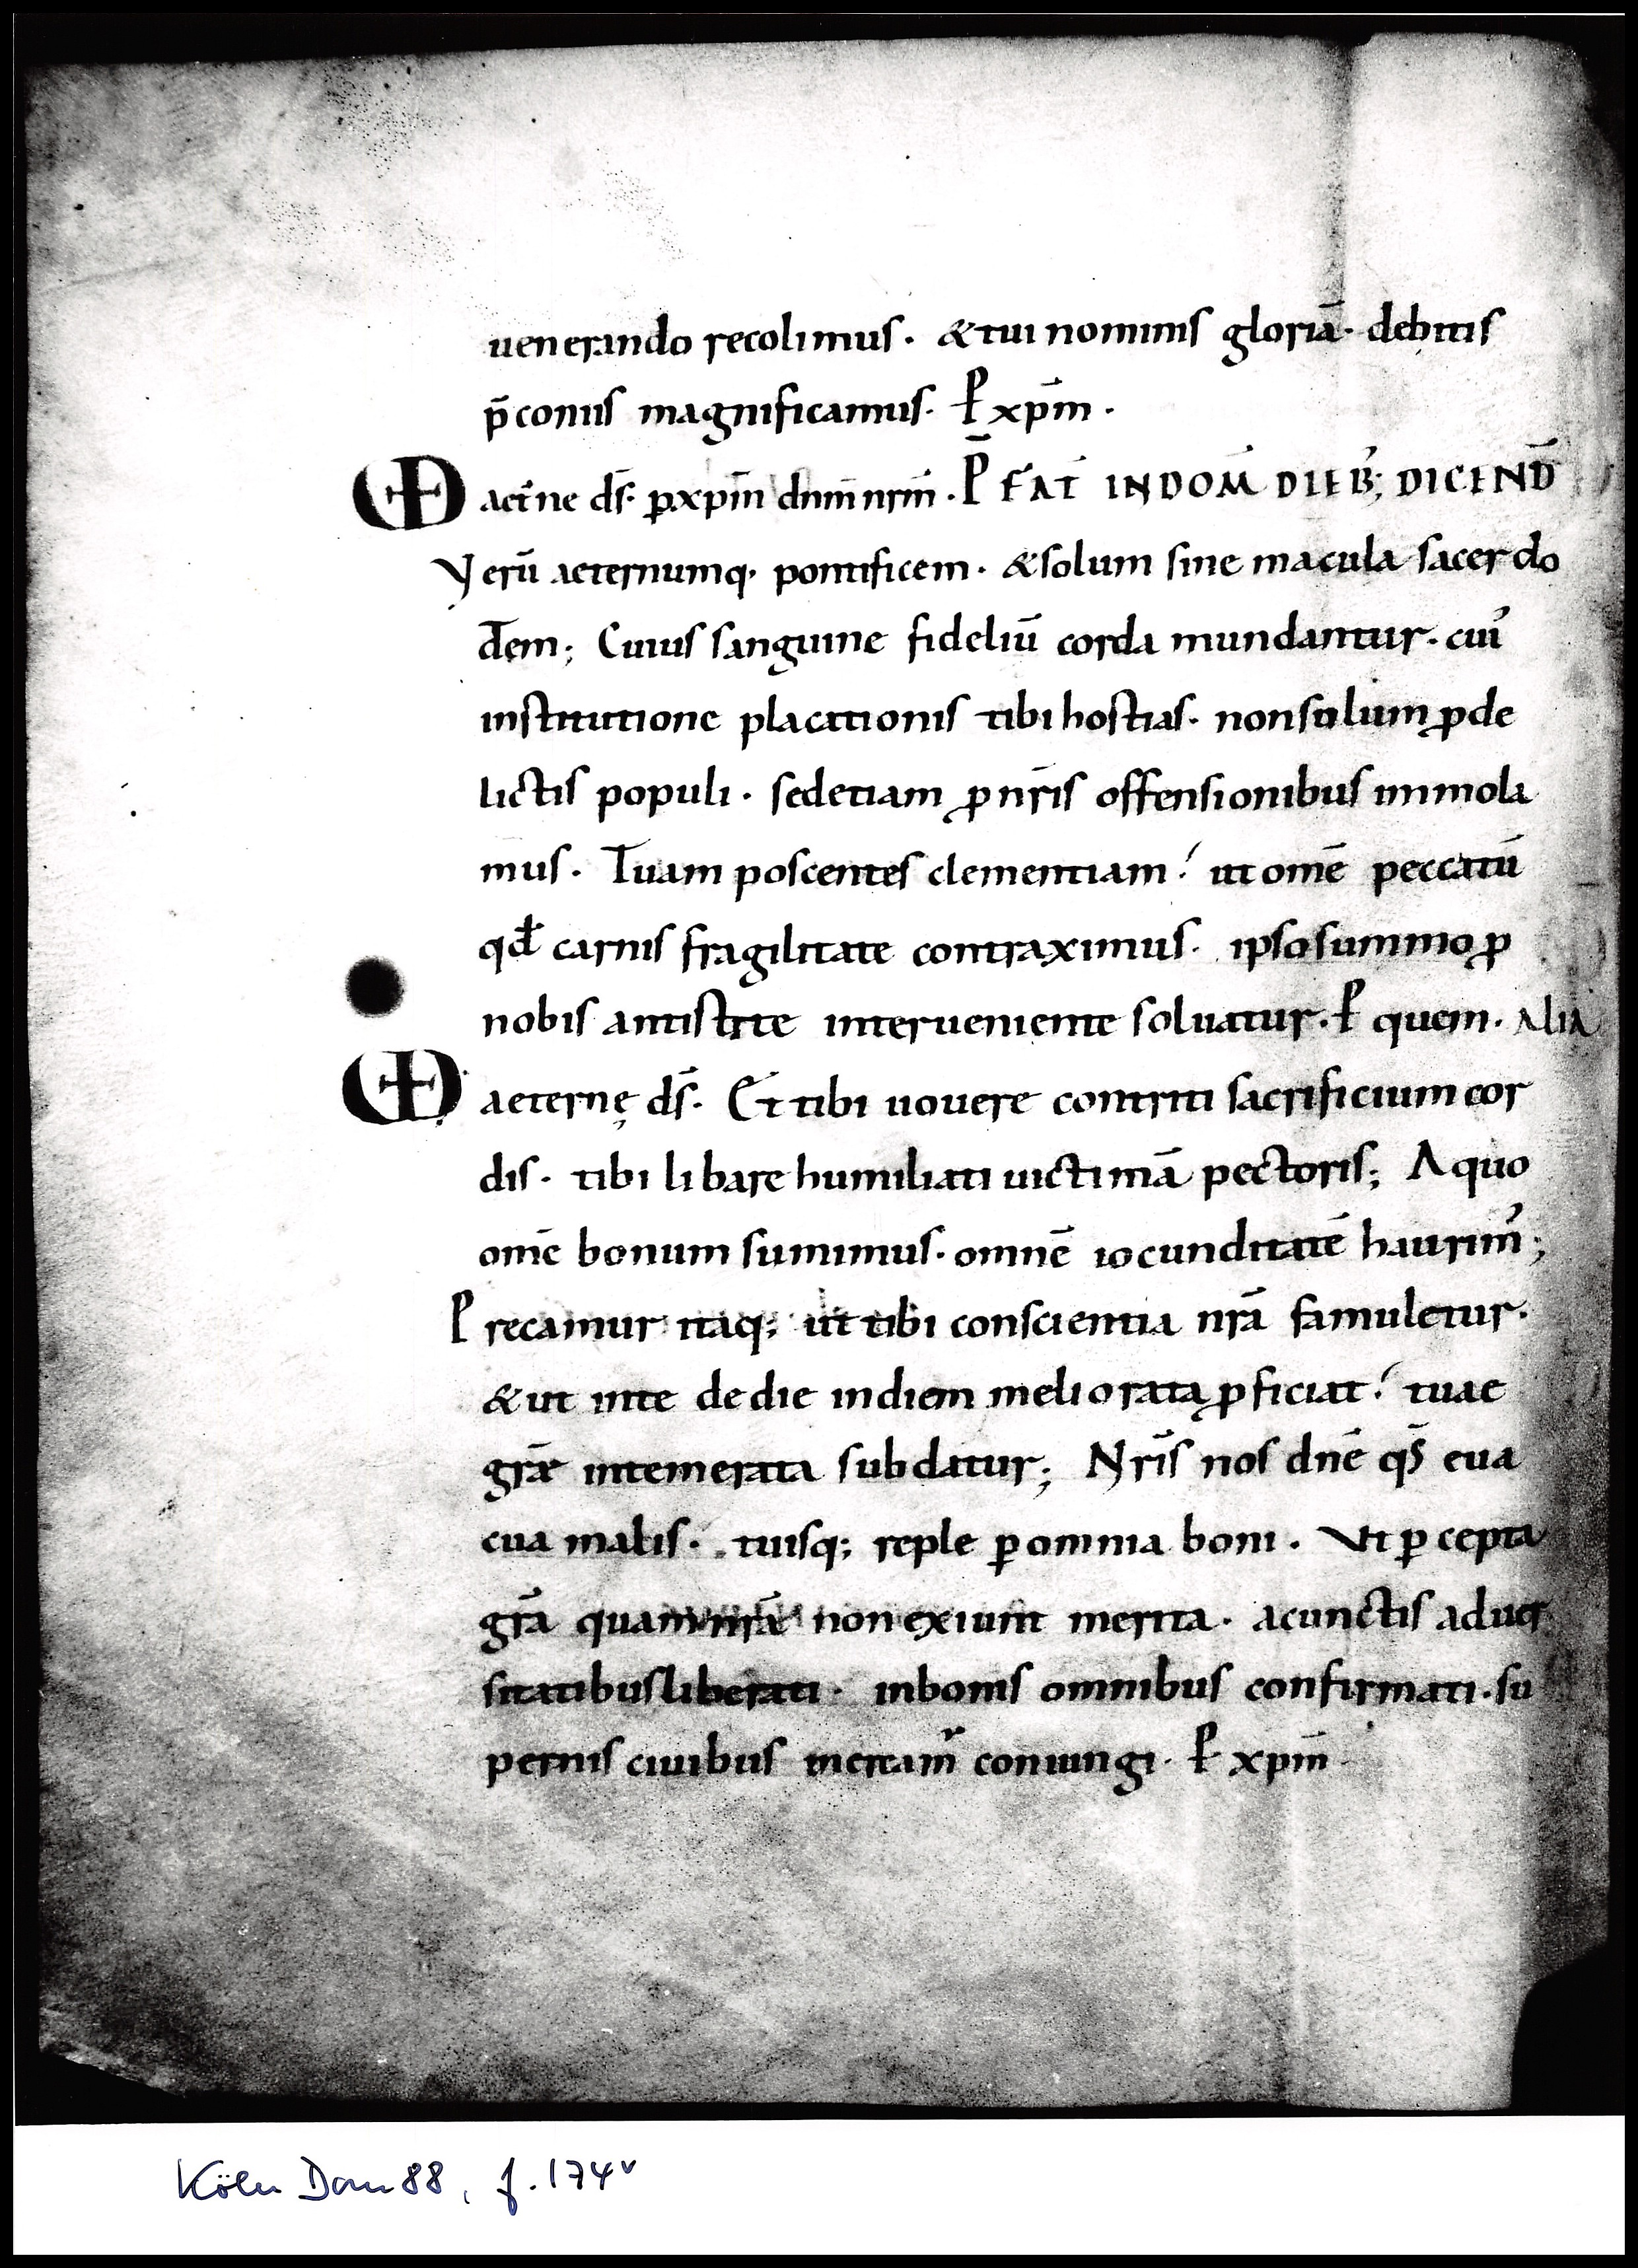 uenerando recolimus. & tui nominis gloriā. debitis
p̄coniis magnificamus. P xp̄m.
VD aet̄ne d̄s. p xp̄m dn̄m nr̄m. P̄FAT̄ IN DOM̄ DIEB; DICEND̄
Verū aeternumq. pontificem. & solum sine macula sacerdo
tem; Cuius sanguine fideliū corda mundantur. cui'
institutione placationis tibi hostias. non solum ꝓ de
lictis populi. sed etiam ꝓ nr̄is offensionibus immola
mus. Tuam poscentes clementiam! ut om̄e peccatū
qđ carnis fragilitate contraximus. ipso summo ꝓ
nobis antistite interueniente soluatur. P quem. Alia
VD aeternę d̄s. Et tibi uouere contriti sacrificium cor
dis. tibi libare humiliati uictimā pectoris; A quo
om̄e bonum sumimus. omnē iocunditatē haurim';
Precamur itaq; ut tibi conscientia nr̄a famuletur.
& ut in te de die in diem meliorata ꝓficiat! tuae
gr̄ae intemerata subdatur; Nr̄is nos dn̄e qs̄ eua
cua malis. tuisq; reple ꝑ omnia boni. Vt ꝑcepta
gr̄a quam nr̄a non exiunt merita. a cunctis aduer
sitatibus liberati. in bonis omnibus confirmati. su
pernis ciuibus mereamur coniungi. P xp̄m.
Köln Dom 88, f. 174v